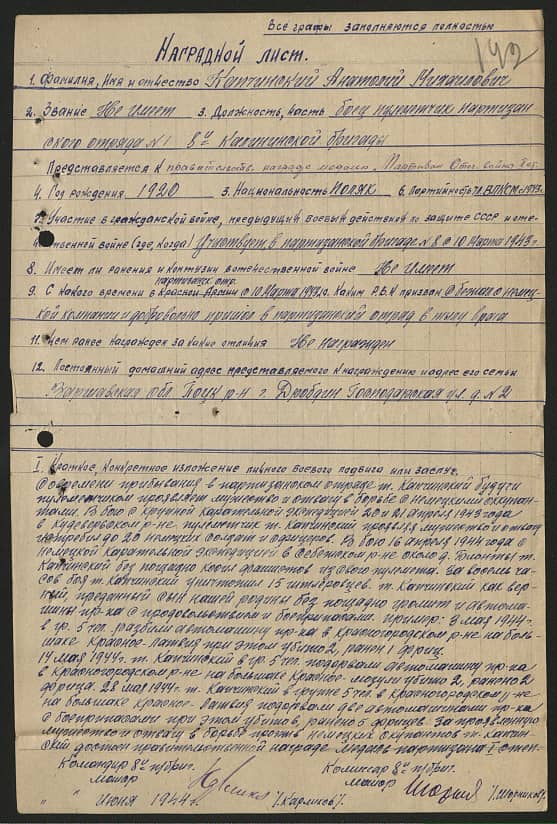 Все графы заполняются полностью
192
Наградной лист.
1. Фамилия, Имя и отчество Капчинский Анатолий Михайлович
2. Звание Не имеет 3. Должность, часть боец пулеметчик партизан
ского отряда №1 8й Калининской бригады
Представляется к правительств. награде медаль „Партизан Отеч. война
4. Год рождения 1920 5. Национальность Поляк 6. Партийность ВЛКСМ 1943
7. Участие в гражданской войне, предыдущих боевых действиях по защите СССР и оте-
чественной войне (где, когда) Участвует в партизанской бригаде №8 с 10 марта 1943 г.
8. Имеет ли ранения и контузии в отечественной войне Не имеет
партизанск. отр.
9. С какого времени в Красной Армии с 10 марта 1943 г. Каким Р.В.К призван Сбежал с немец-
кой компании и добровольно пришел в партизанский отряд в тылу врага
11. Чем ранее награжден за какие отличия Не награжден
12. Постоянный домашний адрес представляемого к награждению и адрес его семьи
Варшавская обл. р-н г. ул. д. №2
I. Краткое, конкретное изложение личного боевого подвига или заслуг.
Со времени прибывания в партизанском отряде т. Капчинский будучи
пулеметчиком проявляет мужество и отвагу в борьбе с немецкими оккупан-
тами. В бою с крупной карательной экспедицией 20 и 21 апреля 1943 года
в Кудеверьском р-не пулеметчик т. Капчинский проявил мужество и отвагу
истребил до 20 немецких солдат и офицеров. В бою 16 апреля 1944 года с
немецкой карательной экспедицией в Себежском р-не около д. т.
Капчинский беспощадно косил фашистов из своего пулемета. За восемь ча-
сов боя т. Капчинский уничтожил 15 гитлеровцев. т. Капчинский как вер-
ный, преданный сын нашей родины беспощадно громит и автома-
шины пр-ка с продовольствием и боеприпасами. пример: 3 мая 1944 г.
в гр. 5 чел. разбили автомашину пр-ка в Красногородском р-не на боль-
шаке Красное-Латвия при этом убито 2, ранен 1 фриц.
14 мая 1944 г. т. Капчинский в гр. 5 чел. подорвали автомашину пр-ка
в Красногородском р-не на большаке Красное- убито 2, ранено 2
фрица. 28 мая 1944 г. т. Капчинский в группе 5 чел. в Красногородском р-не
на большаке Красное-Латвия подорвали две автомашины пр-ка
с боеприпасами при этом убитов, ранено 5 фрицев. За проявленную
мужество и отвагу в борьбе против немецких оккупантов т. Капчин-
ский достоин правительственной награде медаль партизана I степен-
Командир 8й п/бриг. Комиссар 8й п/бриг.
майор майор
/Карликов/. /Шорников/.
„ „ июня 1944 г.